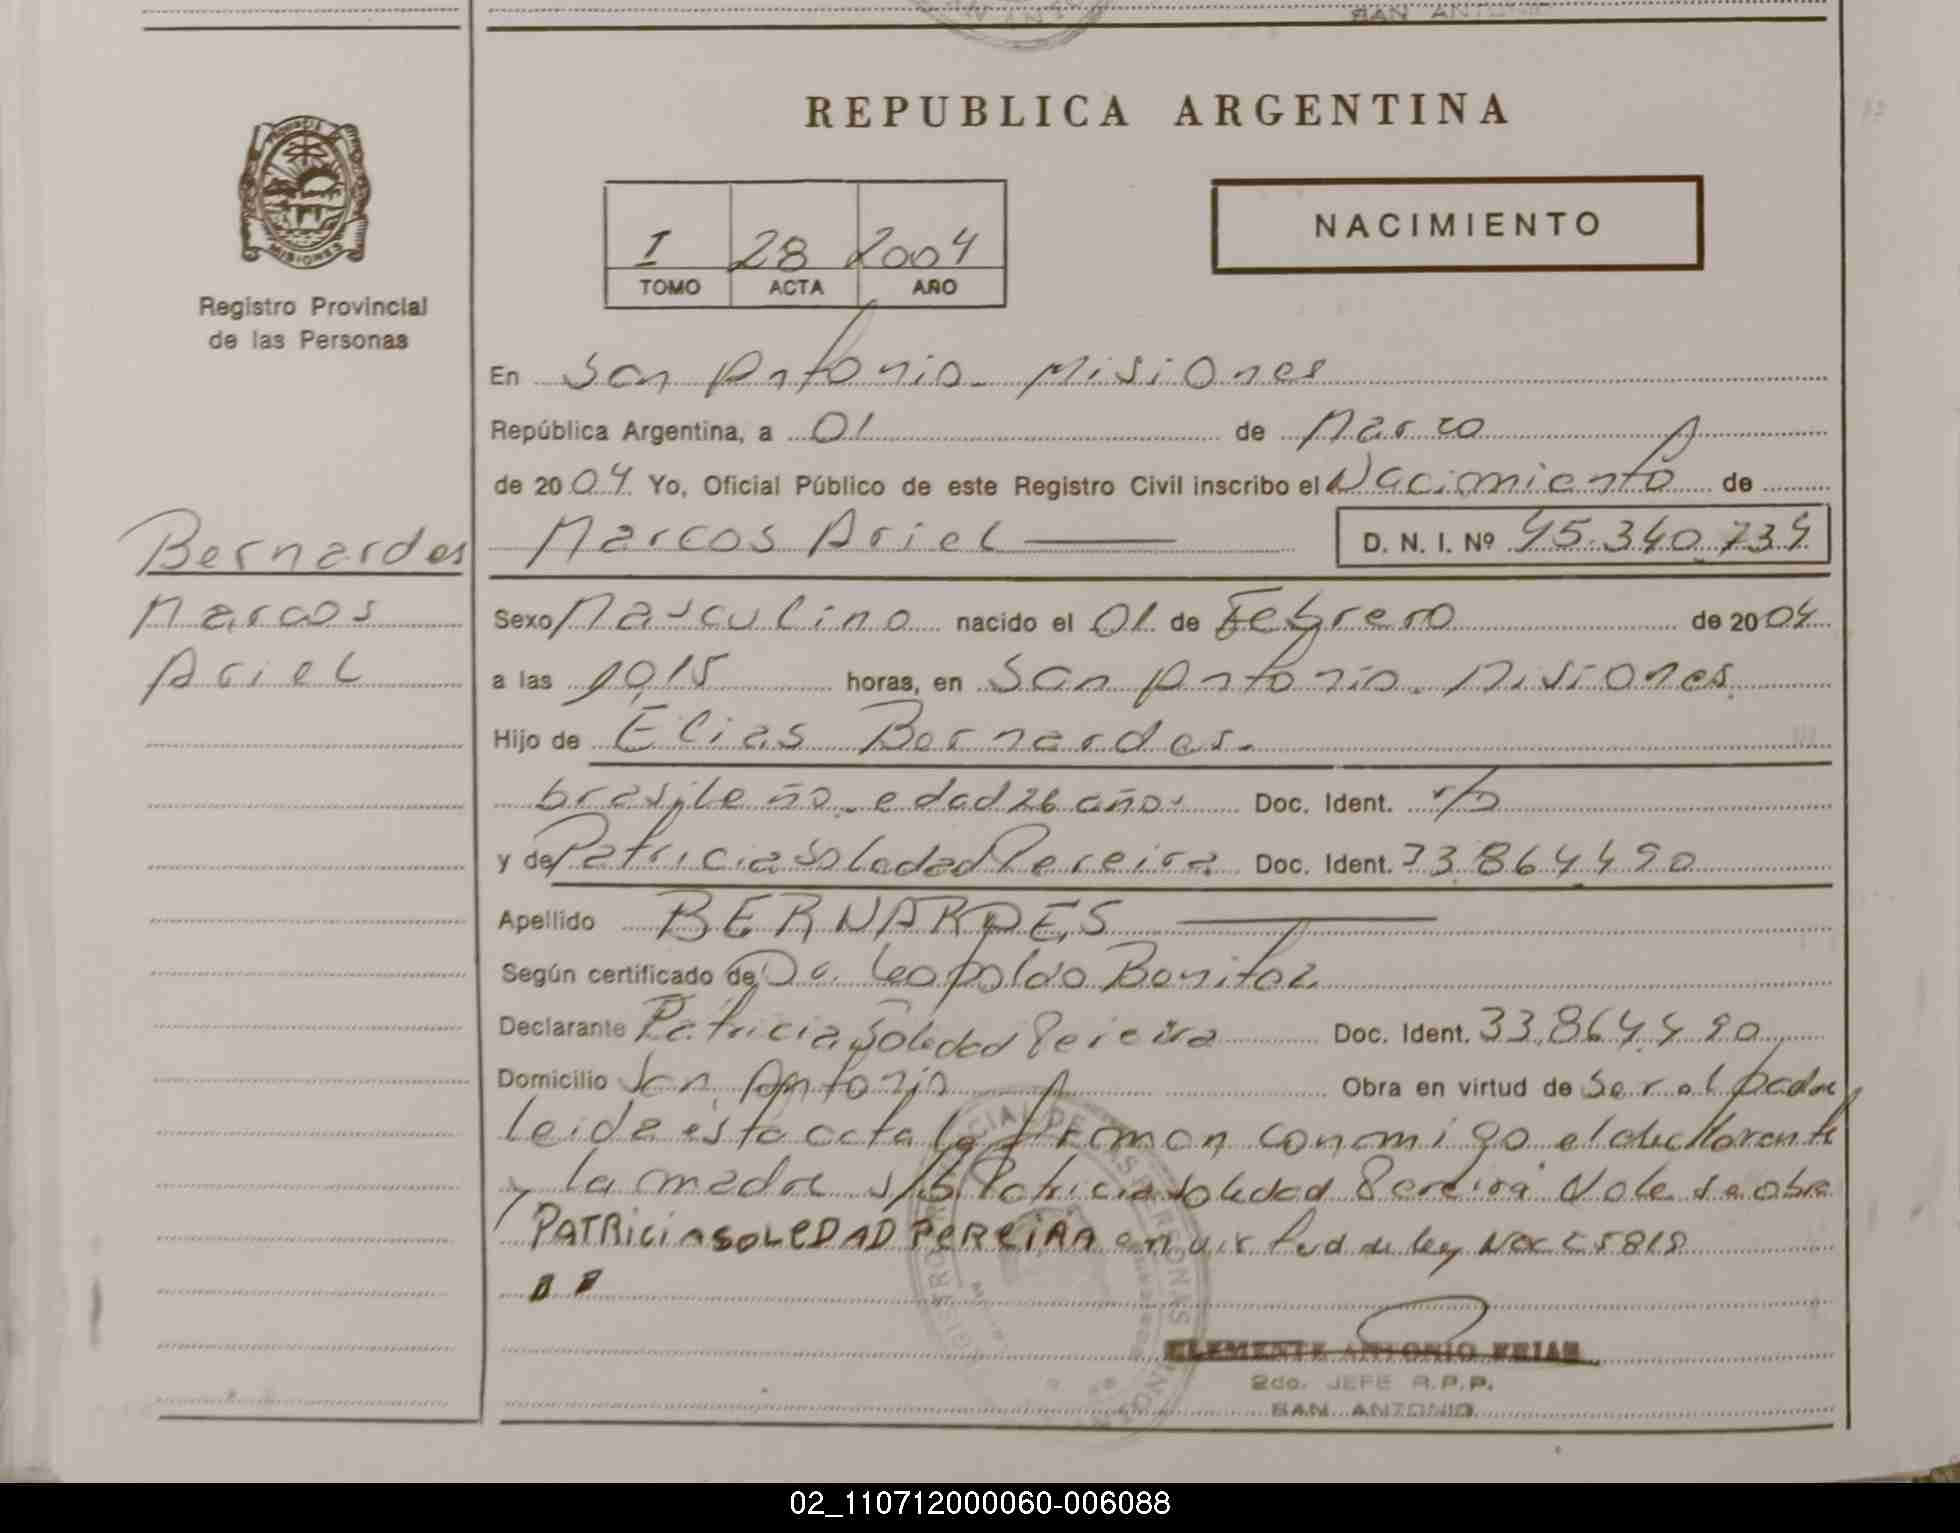 SAN ANTONIO
REPUBLICA ARGENTINA
MISIONES
Registro Provincial
de las Personas
NACIMIENTO
I 28 2004
TOMO ACTA AÑO
En San Antonio - Misiones
República Argentina, a 01 de Marzo
de 2004 Yo, Oficial Público de este Registro Civil inscribo el Nacimiento de
Bernardes
Marcos
Ariel
Marcos Ariel
D. N. I. Nº 45.340.734
Sexo Masculino nacido el 01 de Febrero de 2004
a las 10,15 horas, en San Antonio. Misiones.
Hijo de Elias Bernardes.
brasileño. edad 26 años Doc. Ident.
y de Patricia Soledad Pereira Doc. Ident. 33.864.490
Apellido BERNARDES
Según certificado de Dr. Leopoldo Benitez
Declarante Patricia Soledad Pereira Doc. Ident. 33.864.490
Domicilio San Antonio Obra en virtud de Ser el padre
leida esta acta la firman conmigo el declarante
y la madre s/b Patricia Soledad Pereira Vale se obra
PATRICIA SOLEDAD PEREIRA en virtud de ley
CLEMENTE ANTONIO FRIAS
2do. JEFE R.P.P.
SAN ANTONIO
02_110712000060-006088